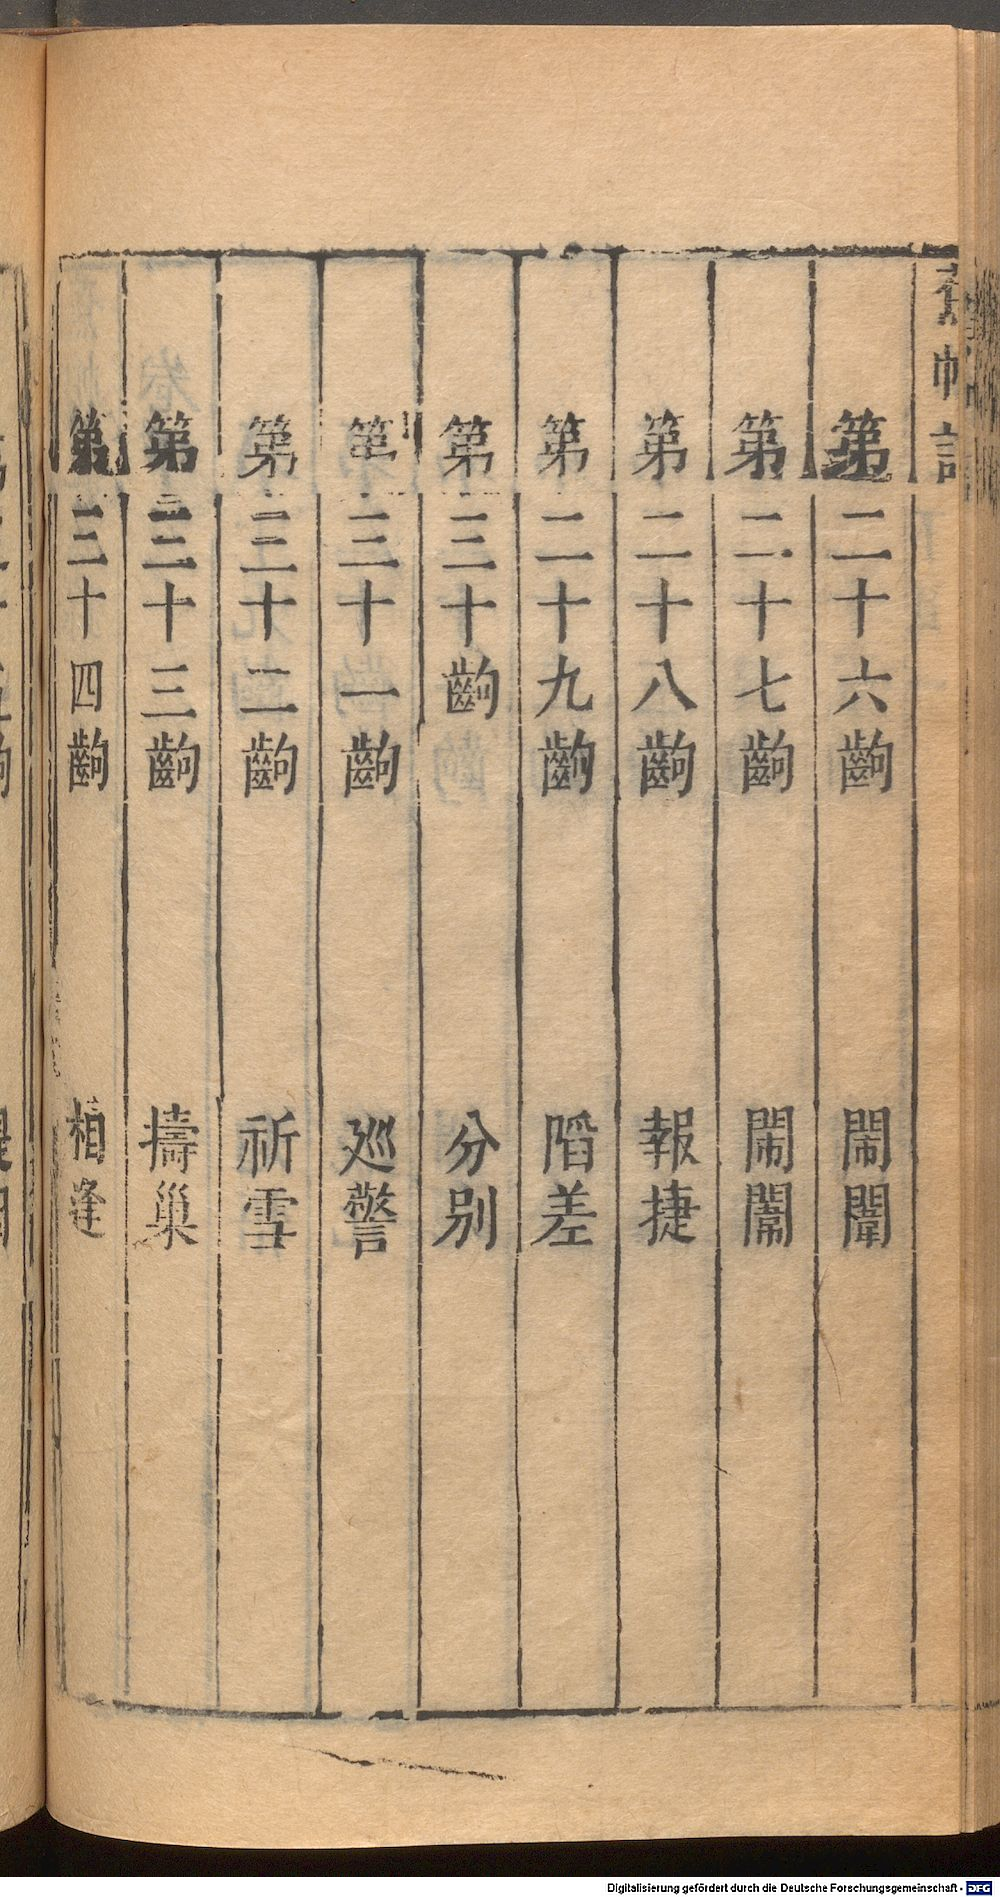 蕉帕記
第二十六齣 閙闈
第二十七齣 閙
第二十八齣 報捷
第二十九齣 䧟差
第三十齣 分別
第三十一齣 廵警
第三十二齣 祈雪
第三十三齣 擣巢
第三十四齣 相逢
Digitalisierung gefördert durch die Deutsche Forschungsgemeinschaft - DFG